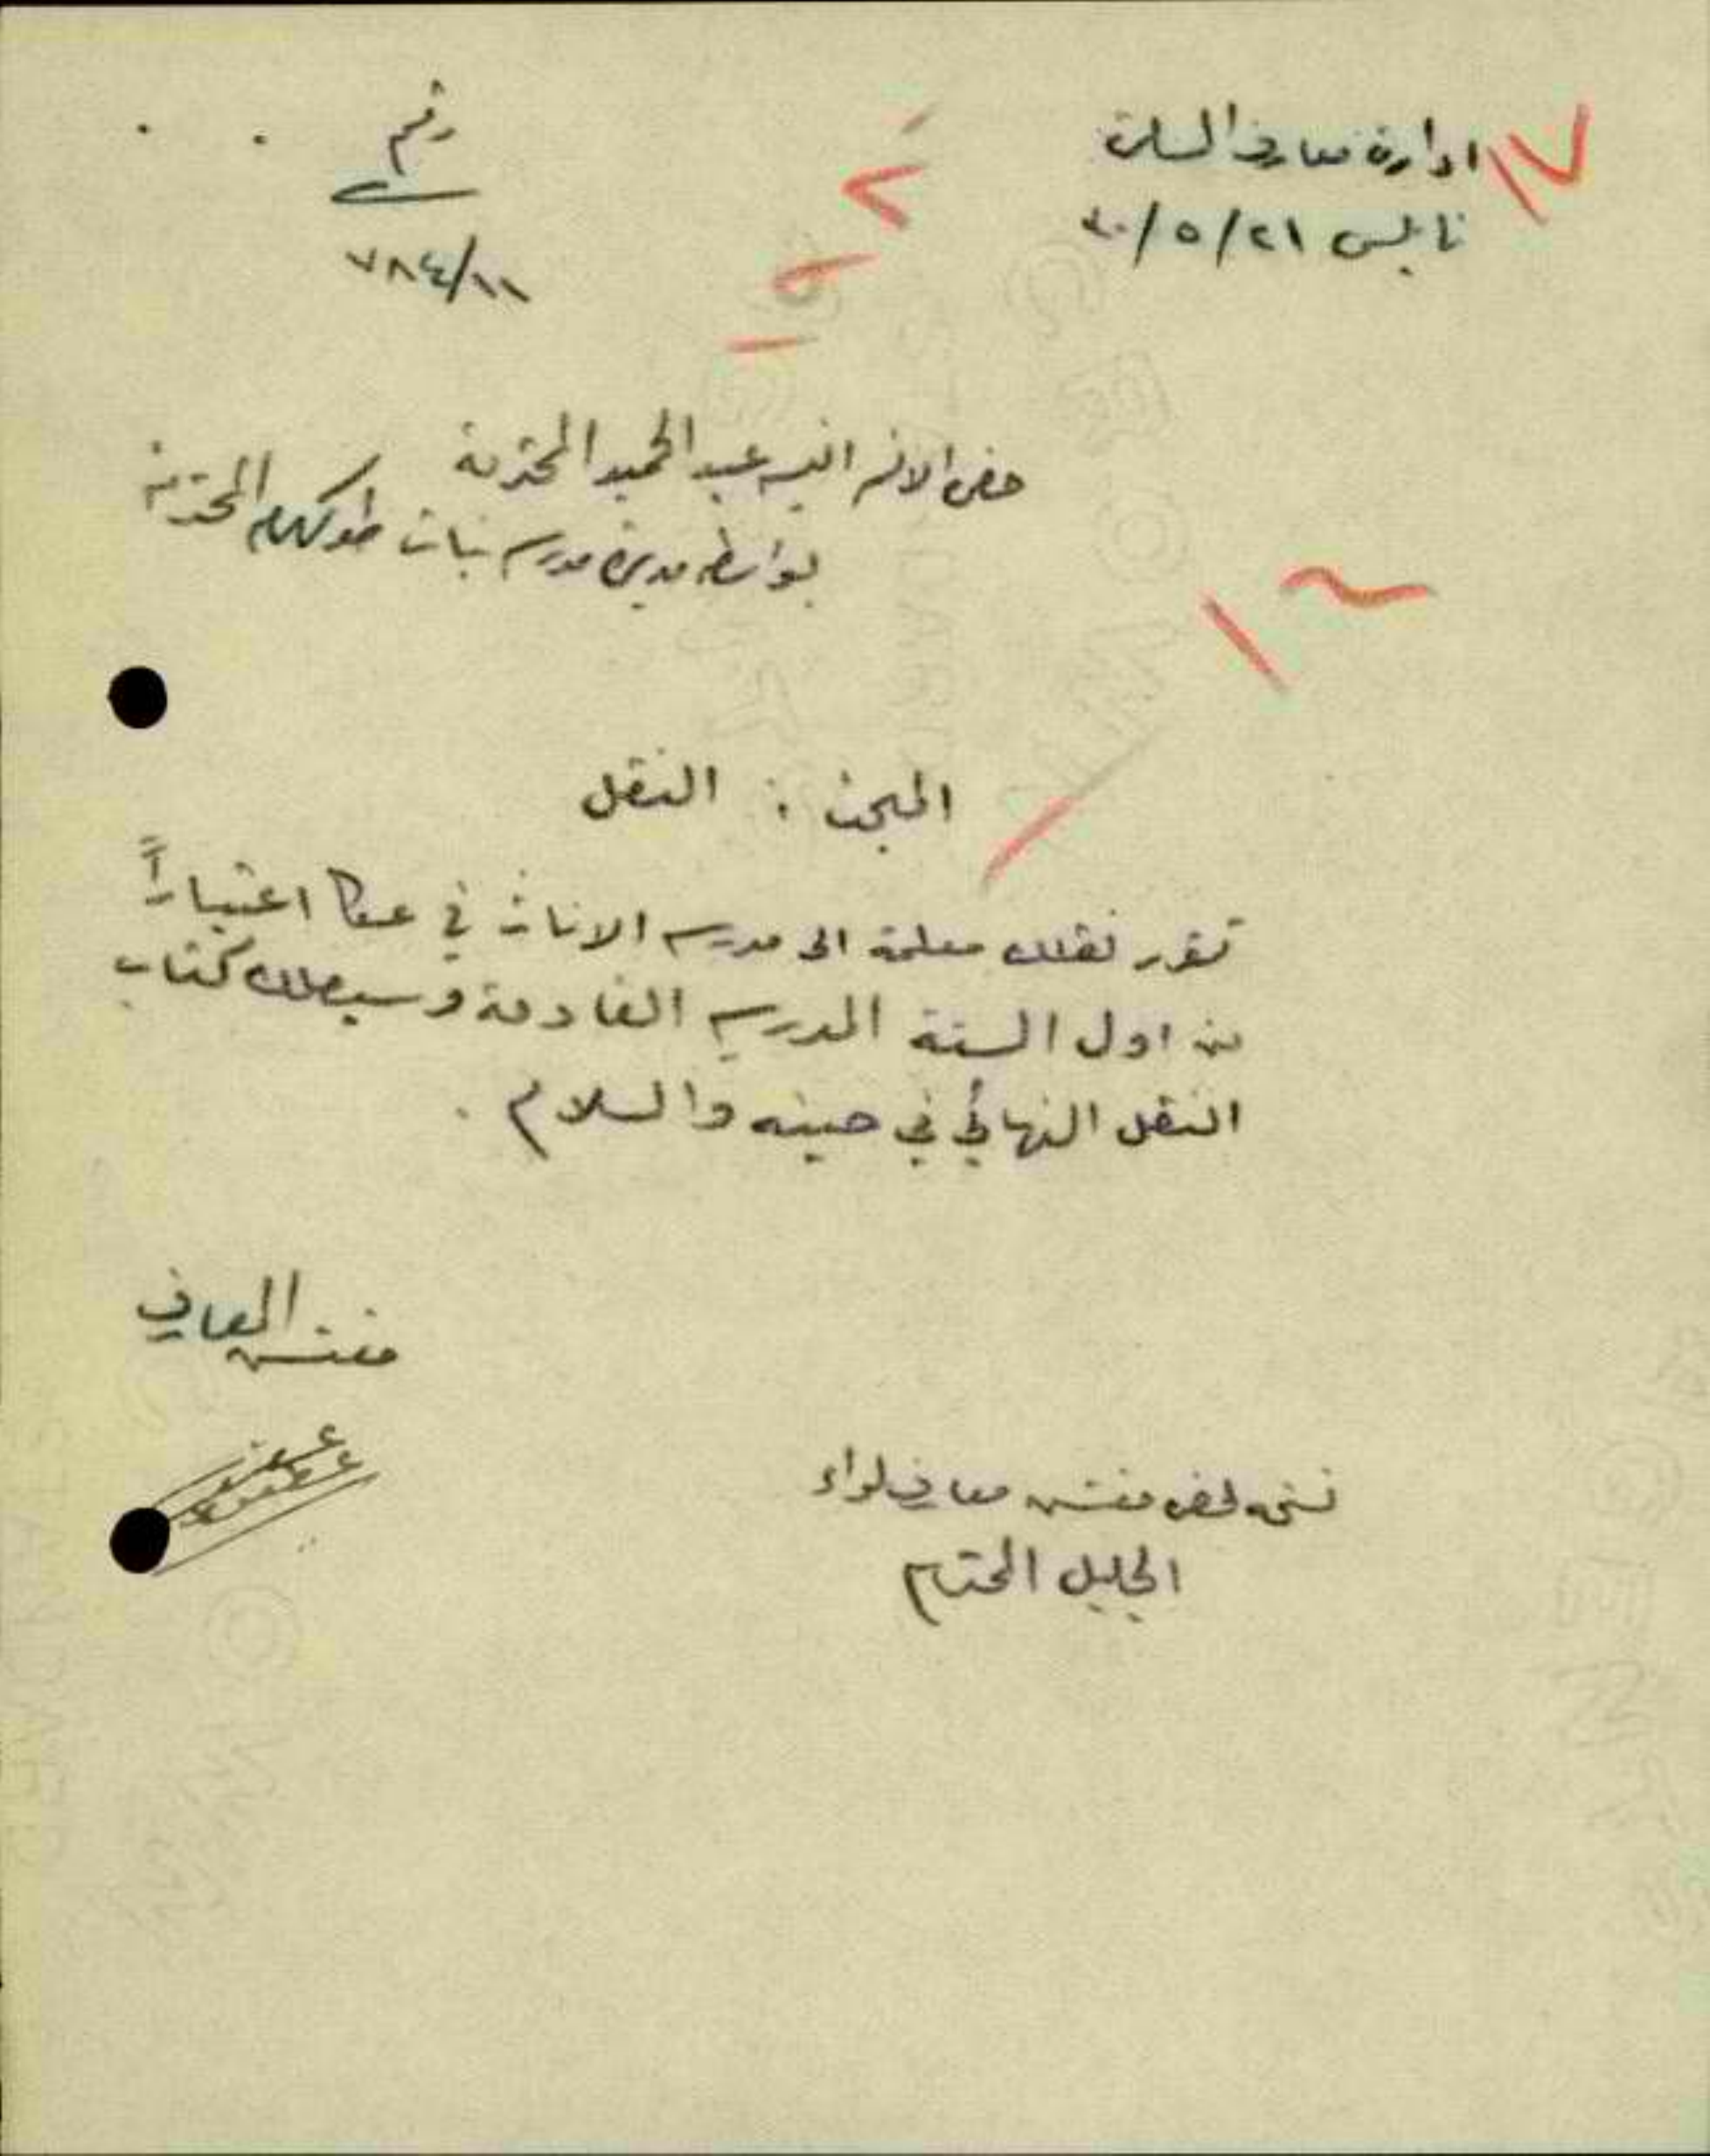 ادارة معارف السامرة
نابلس ٢١/٥/٣٠
رقم
٧٨٤/١١
حضرة الانسة انيسه عبد الحميد المحترمة
بواسطة مديرة مدرسة بنات طولكرم المحترمة
المبحث : النقل
تقرر نقلك معلمة الى مدرسة الاناث في عكا اعتباراً
من اول السنة المدرسية القادمة وسيصلك كتاب
النقل النهائي في حينه والسلام .
مفتش المعارف
نسخة لحضرة مفتش معارف لواء
الجليل المحترم